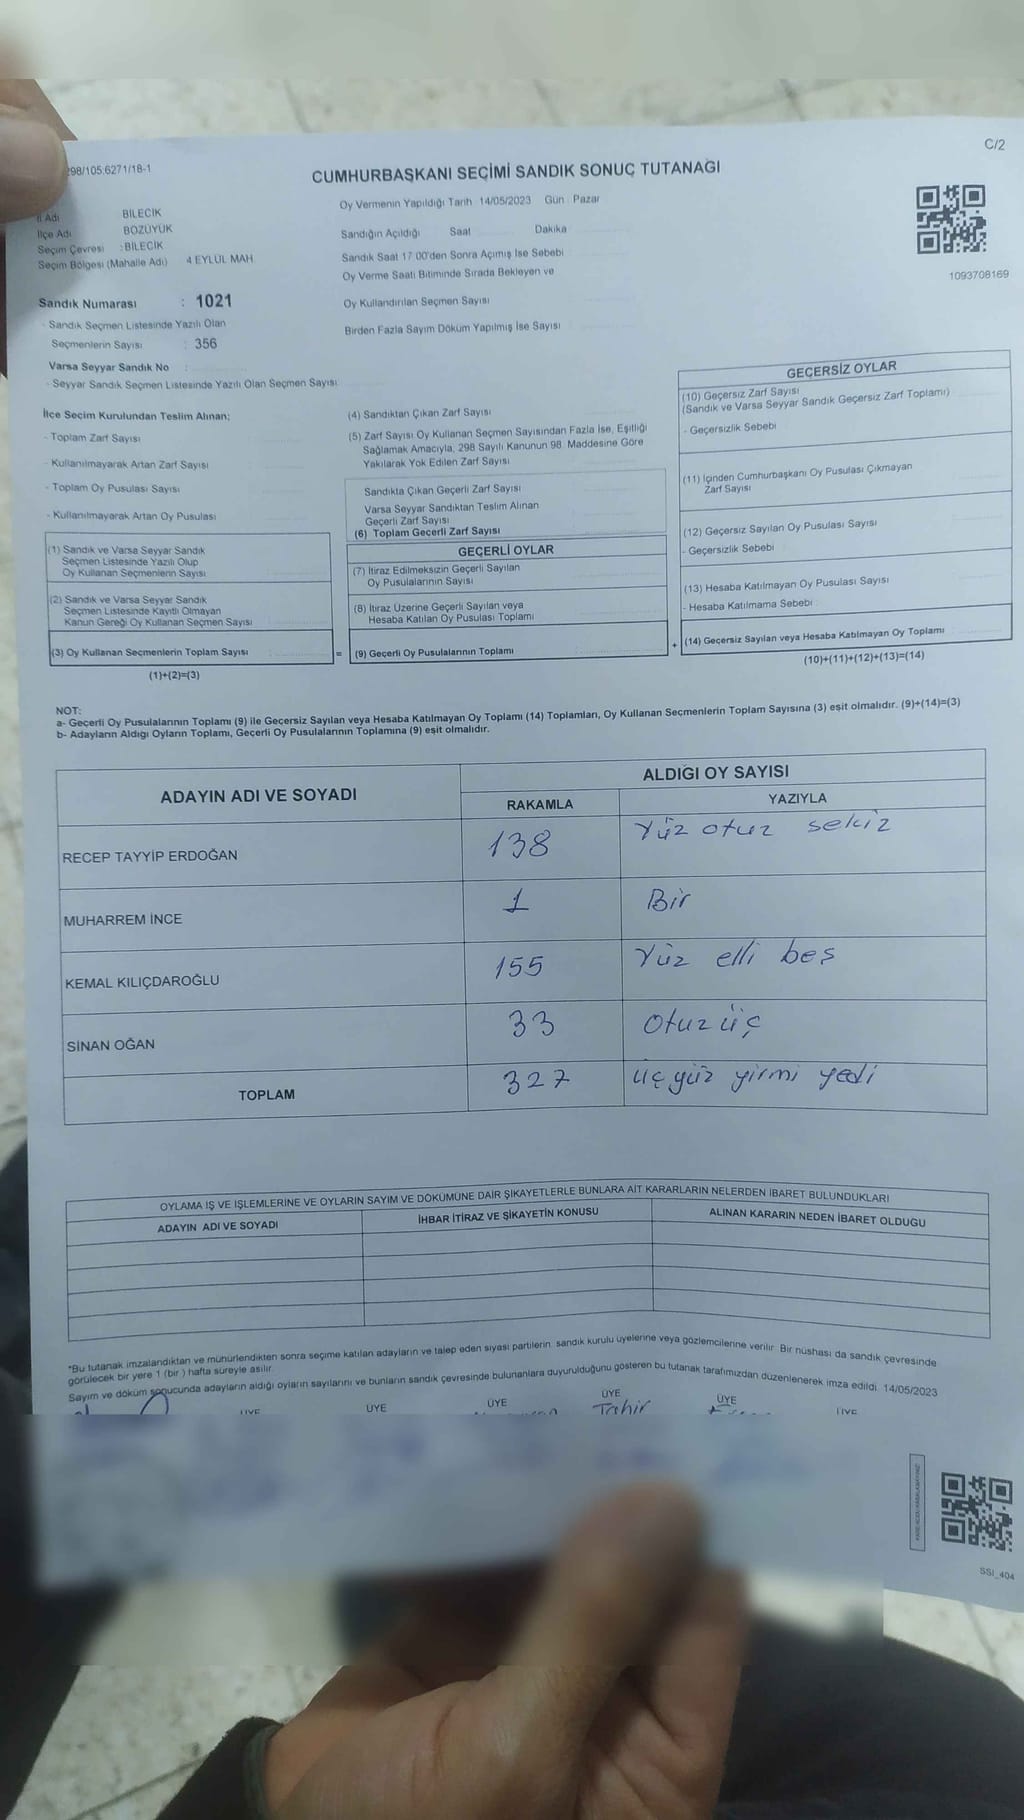 C/2
298/105:6271/18-1
CUMHURBAŞKANI SEÇİMİ SANDIK SONUÇ TUTANAĞI
İl Adı BİLECİK
İlçe Adı BOZÜYÜK
Seçim Çevresi : BİLECİK
Seçim Bölgesi (Mahalle Adı) 4 EYLÜL MAH.
Oy Vermenin Yapıldığı Tarih 14/05/2023 Gün : Pazar
Sandığın Açıldığı Saat Dakika
Sandık Saat 17:00'den Sonra Açımış İse Sebebi
Oy Verme Saati Bitiminde Sırada Bekleyen ve
Oy Kullandırılan Seçmen Sayısı
Birden Fazla Sayım Döküm Yapılmış İse Sayısı
1093708169
Sandık Numarası : 1021
- Sandık Seçmen Listesinde Yazılı Olan
Seçmenlerin Sayısı : 356
Varsa Seyyar Sandık No :
- Seyyar Sandık Seçmen Listesinde Yazılı Olan Seçmen Sayısı:
İlçe Seçim Kurulundan Teslim Alınan;
- Toplam Zarf Sayısı
- Kullanılmayarak Artan Zarf Sayısı
- Toplam Oy Pusulası Sayısı
- Kullanılmayarak Artan Oy Pusulası
(1) Sandık ve Varsa Seyyar Sandık
Seçmen Listesinde Yazılı Olup
Oy Kullanan Seçmenlerin Sayısı
(2) Sandık ve Varsa Seyyar Sandık
Seçmen Listesinde Kayıtlı Olmayan
Kanun Gereği Oy Kullanan Seçmen Sayısı
(3) Oy Kullanan Seçmenlerin Toplam Sayısı :
(1)+(2)=(3)
=
(4) Sandıktan Çıkan Zarf Sayısı
(5) Zarf Sayısı Oy Kullanan Seçmen Sayısından Fazla İse, Eşitliği
Sağlamak Amacıyla, 298 Sayılı Kanunun 98. Maddesine Göre
Yakılarak Yok Edilen Zarf Sayısı
Sandıkta Çıkan Geçerli Zarf Sayısı
Varsa Seyyar Sandıktan Teslim Alınan
Geçerli Zarf Sayısı
(6) Toplam Geçerli Zarf Sayısı
GEÇERLİ OYLAR
(7) İtiraz Edilmeksizin Geçerli Sayılan
Oy Pusulalarının Sayısı
(8) İtiraz Üzerine Geçerli Sayılan veya
Hesaba Katılan Oy Pusulası Toplamı
(9) Geçerli Oy Pusulalarının Toplamı :
+
GEÇERSİZ OYLAR
(10) Geçersiz Zarf Sayısı
(Sandık ve Varsa Seyyar Sandık Geçersiz Zarf Toplamı)
- Geçersizlik Sebebi
(11) İçinden Cumhurbaşkanı Oy Pusulası Çıkmayan
Zarf Sayısı
(12) Geçersiz Sayılan Oy Pusulası Sayısı
- Geçersizlik Sebebi
(13) Hesaba Katılmayan Oy Pusulası Sayısı
- Hesaba Katılmama Sebebi :
(14) Geçersiz Sayılan veya Hesaba Katılmayan Oy Toplamı
(10)+(11)+(12)+(13)=(14)
NOT:
a- Geçerli Oy Pusulalarının Toplamı (9) ile Geçersiz Sayılan veya Hesaba Katılmayan Oy Toplamı (14) Toplamları, Oy Kullanan Seçmenlerin Toplam Sayısına (3) eşit olmalıdır. (9)+(14)=(3)
b- Adayların Aldığı Oyların Toplamı, Geçerli Oy Pusulalarının Toplamına (9) eşit olmalıdır.
ADAYIN ADI VE SOYADI ALDIĞI OY SAYISI
RAKAMLA YAZIYLA
RECEP TAYYİP ERDOĞAN 138 Yüz otuz sekiz
MUHARREM İNCE 1 Bir
KEMAL KILIÇDAROĞLU 155 Yüz elli beş
SİNAN OĞAN 33 Otuz üç
TOPLAM 327 üç yüz yirmi yedi
OYLAMA İŞ VE İŞLEMLERİNE VE OYLARIN SAYIM VE DÖKÜMÜNE DAİR ŞİKAYETLERLE BUNLARA AİT KARARLARIN NELERDEN İBARET BULUNDUKLARI
ADAYIN ADI VE SOYADI İHBAR İTİRAZ VE ŞİKAYETİN KONUSU ALINAN KARARIN NEDEN İBARET OLDUĞU
*Bu tutanak imzalandıktan ve mühürlendikten sonra seçime katılan adayların ve talep eden siyasi partilerin sandık kurulu üyelerine veya gözlemcilerine verilir. Bir nüshası da sandık çevresinde
görülecek bir yere 1 (bir) hafta süreyle asılır.
Sayım ve döküm sonucunda adayların aldığı oyların sayılarını ve bunların sandık çevresinde bulunanlara duyurulduğunu gösteren bu tutanak tarafımızdan düzenlenerek imza edildi. 14/05/2023
ÜYE ÜYE ÜYE ÜYE ÜYE ÜYE
Tahir
SSI_404